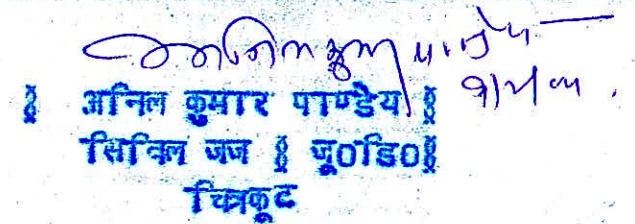 अनिल कुमार पाण्डेय
§ अनिल कुमार पाण्डेय §
सिविल जज § जू0डि0§
चित्रकूट